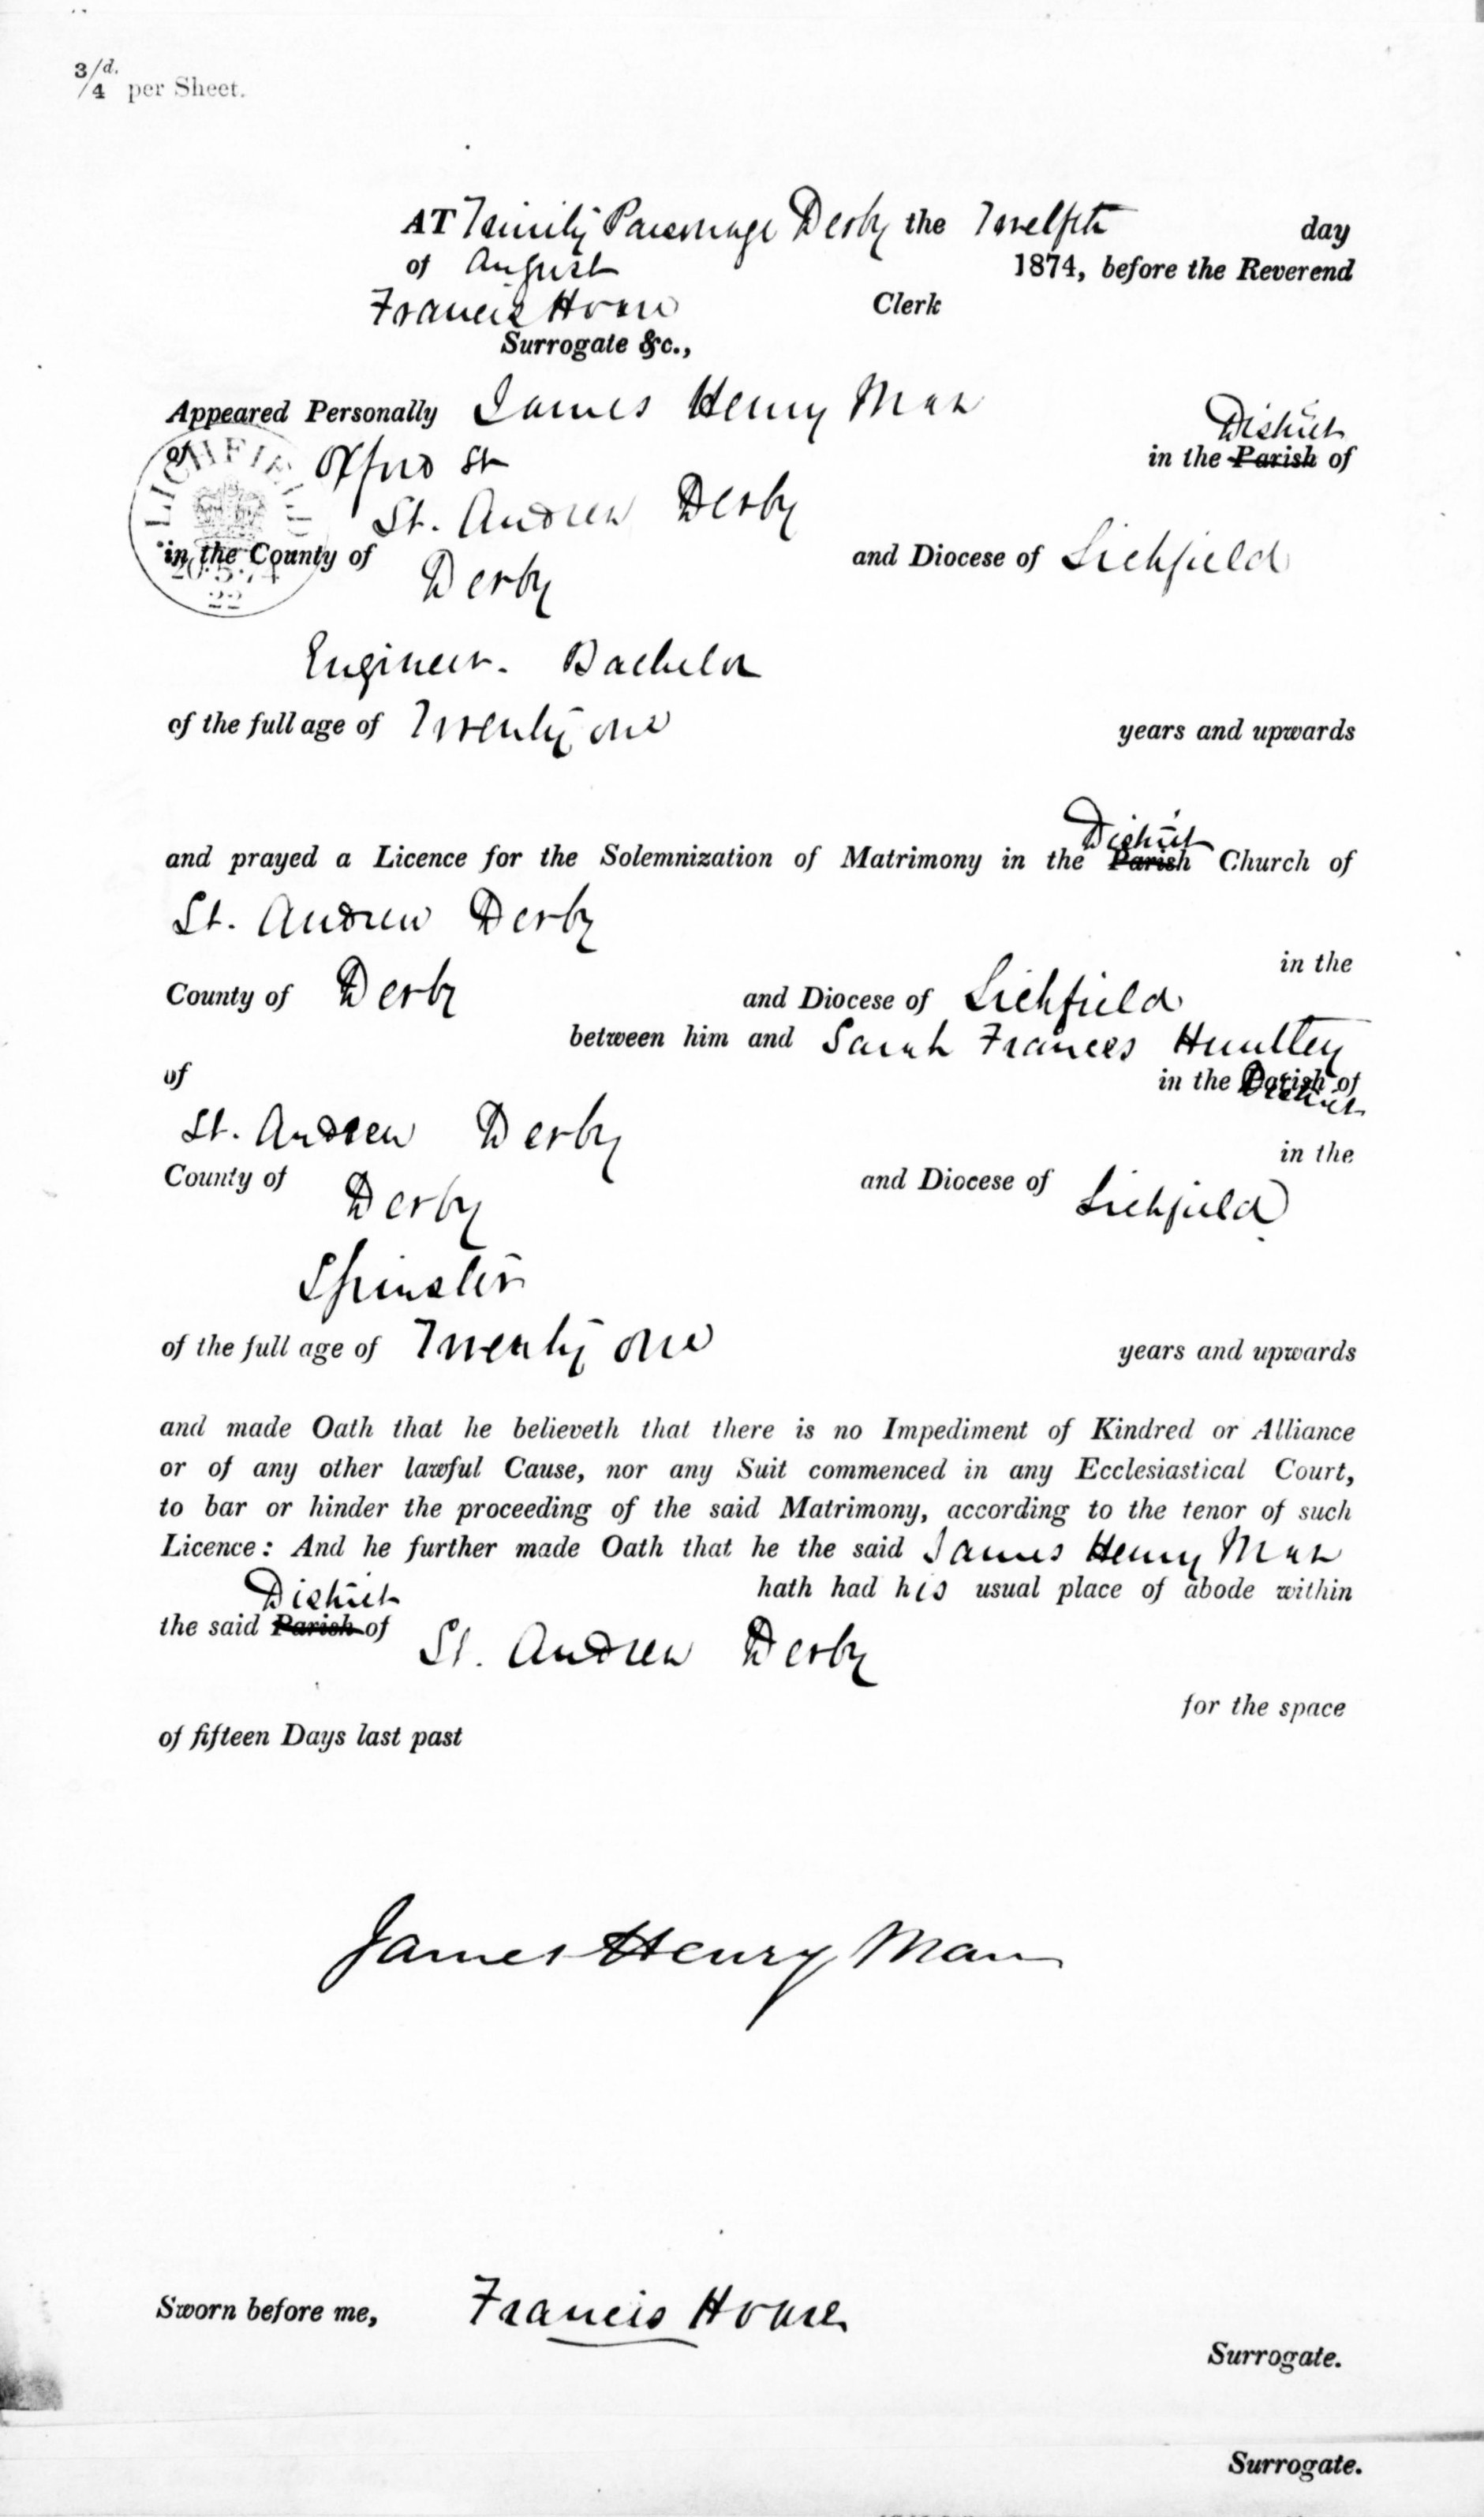 3/4 d. per Sheet.
AT Trinity Parsonage Derby the Twelfth day
of August 1874, before the Reverend
Francis Hoare Clerk
Surrogate &c.,
Appeared Personally James Henry Man
District
of Offord St in the Parish of
St. Andrew Derby
in the County of Derby and Diocese of Lichfield
LICHFIELD
20.5.74
22
Engineer. Bachelor
of the full age of Twenty one years and upwards
District
and prayed a Licence for the Solemnization of Matrimony in the Parish Church of
St. Andrew Derby
in the
County of Derby and Diocese of Lichfield
between him and Sarah Frances Huntley
of in the Parish of
District
St. Andrew Derby
in the
County of Derby and Diocese of Lichfield
Spinster
of the full age of Twenty one years and upwards
and made Oath that he believeth that there is no Impediment of Kindred or Alliance
or of any other lawful Cause, nor any Suit commenced in any Ecclesiastical Court,
to bar or hinder the proceeding of the said Matrimony, according to the tenor of such
Licence: And he further made Oath that he the said James Henry Man
District hath had his usual place of abode within
the said Parish of St. Andrew Derby
for the space
of fifteen Days last past
James Henry Man
Sworn before me, Francis Hoare
Surrogate.
Surrogate.